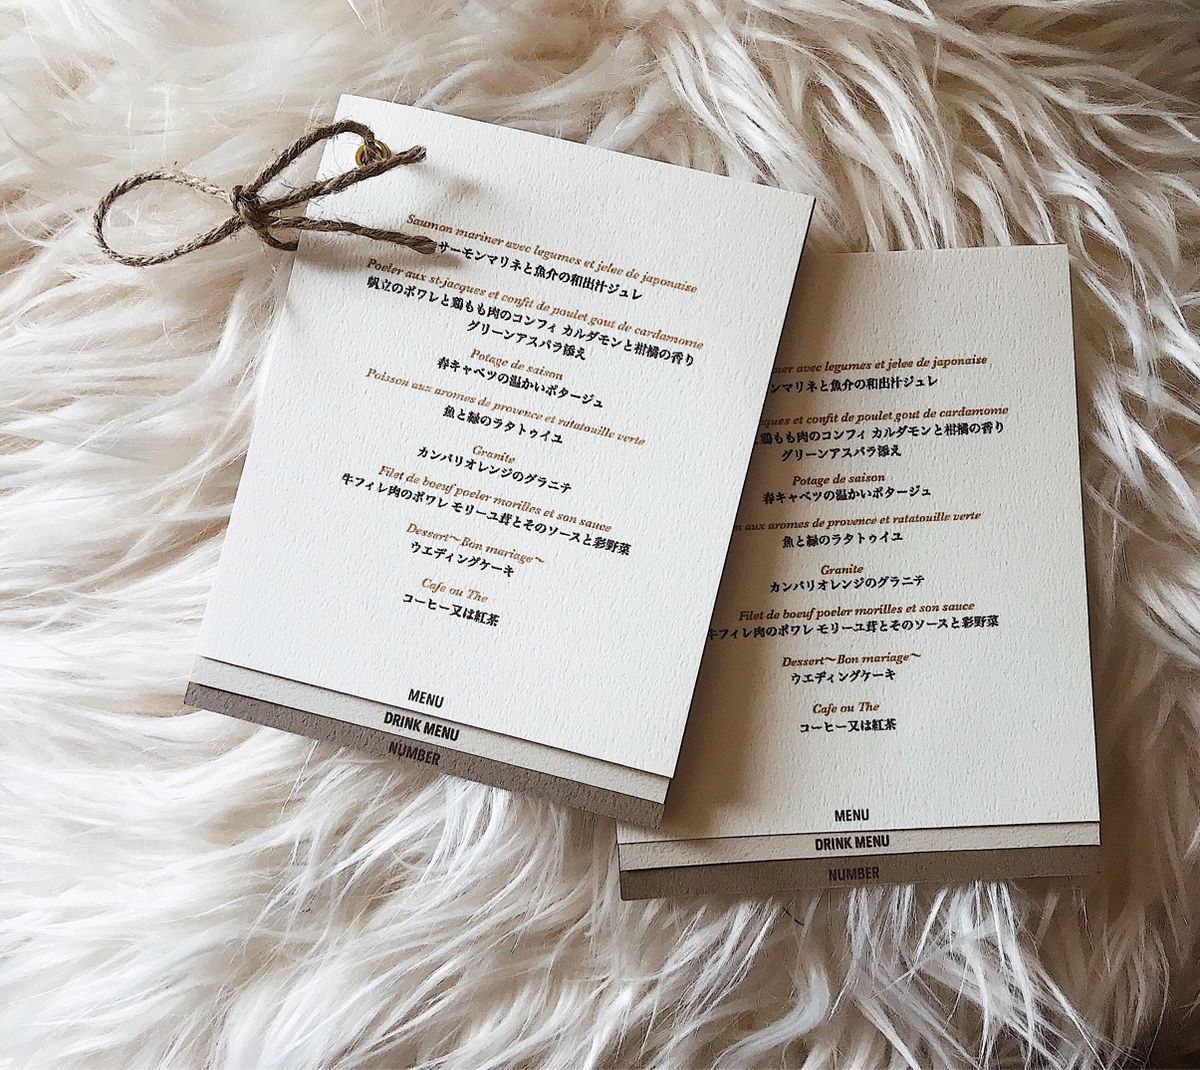 Saumon mariner avec legumes et jelee de japonaise
サーモンマリネと魚介の和出汁ジュレ
Poeler aux st-jacques et confit de poulet gout de cardamome
帆立のポワレと鶏もも肉のコンフィ カルダモンと柑橘の香り
グリーンアスパラ添え
Potage de saison
春キャベツの温かいポタージュ
Poisson aux aromes de provence et ratatouille verte
魚と緑のラタトゥイユ
Granite
カンパリオレンジのグラニテ
Filet de boeuf poeler morilles et son sauce
牛フィレ肉のポワレ モリーユ茸とそのソースと彩野菜
Dessert〜Bon mariage〜
ウエディングケーキ
Cafe ou The
コーヒー又は紅茶
MENU
DRINK MENU
NUMBER
ner avec legumes et jelee de japonaise
ンマリネと魚介の和出汁ジュレ
ques et confit de poulet gout de cardamome
鶏もも肉のコンフィ カルダモンと柑橘の香り
グリーンアスパラ添え
Potage de saison
春キャベツの温かいポタージュ
aux aromes de provence et ratatouille verte
魚と緑のラタトゥイユ
Granite
カンパリオレンジのグラニテ
Filet de boeuf poeler morilles et son sauce
牛フィレ肉のポワレ モリーユ茸とそのソースと彩野菜
Dessert〜Bon mariage〜
ウエディングケーキ
Cafe ou The
コーヒー又は紅茶
MENU
DRINK MENU
NUMBER